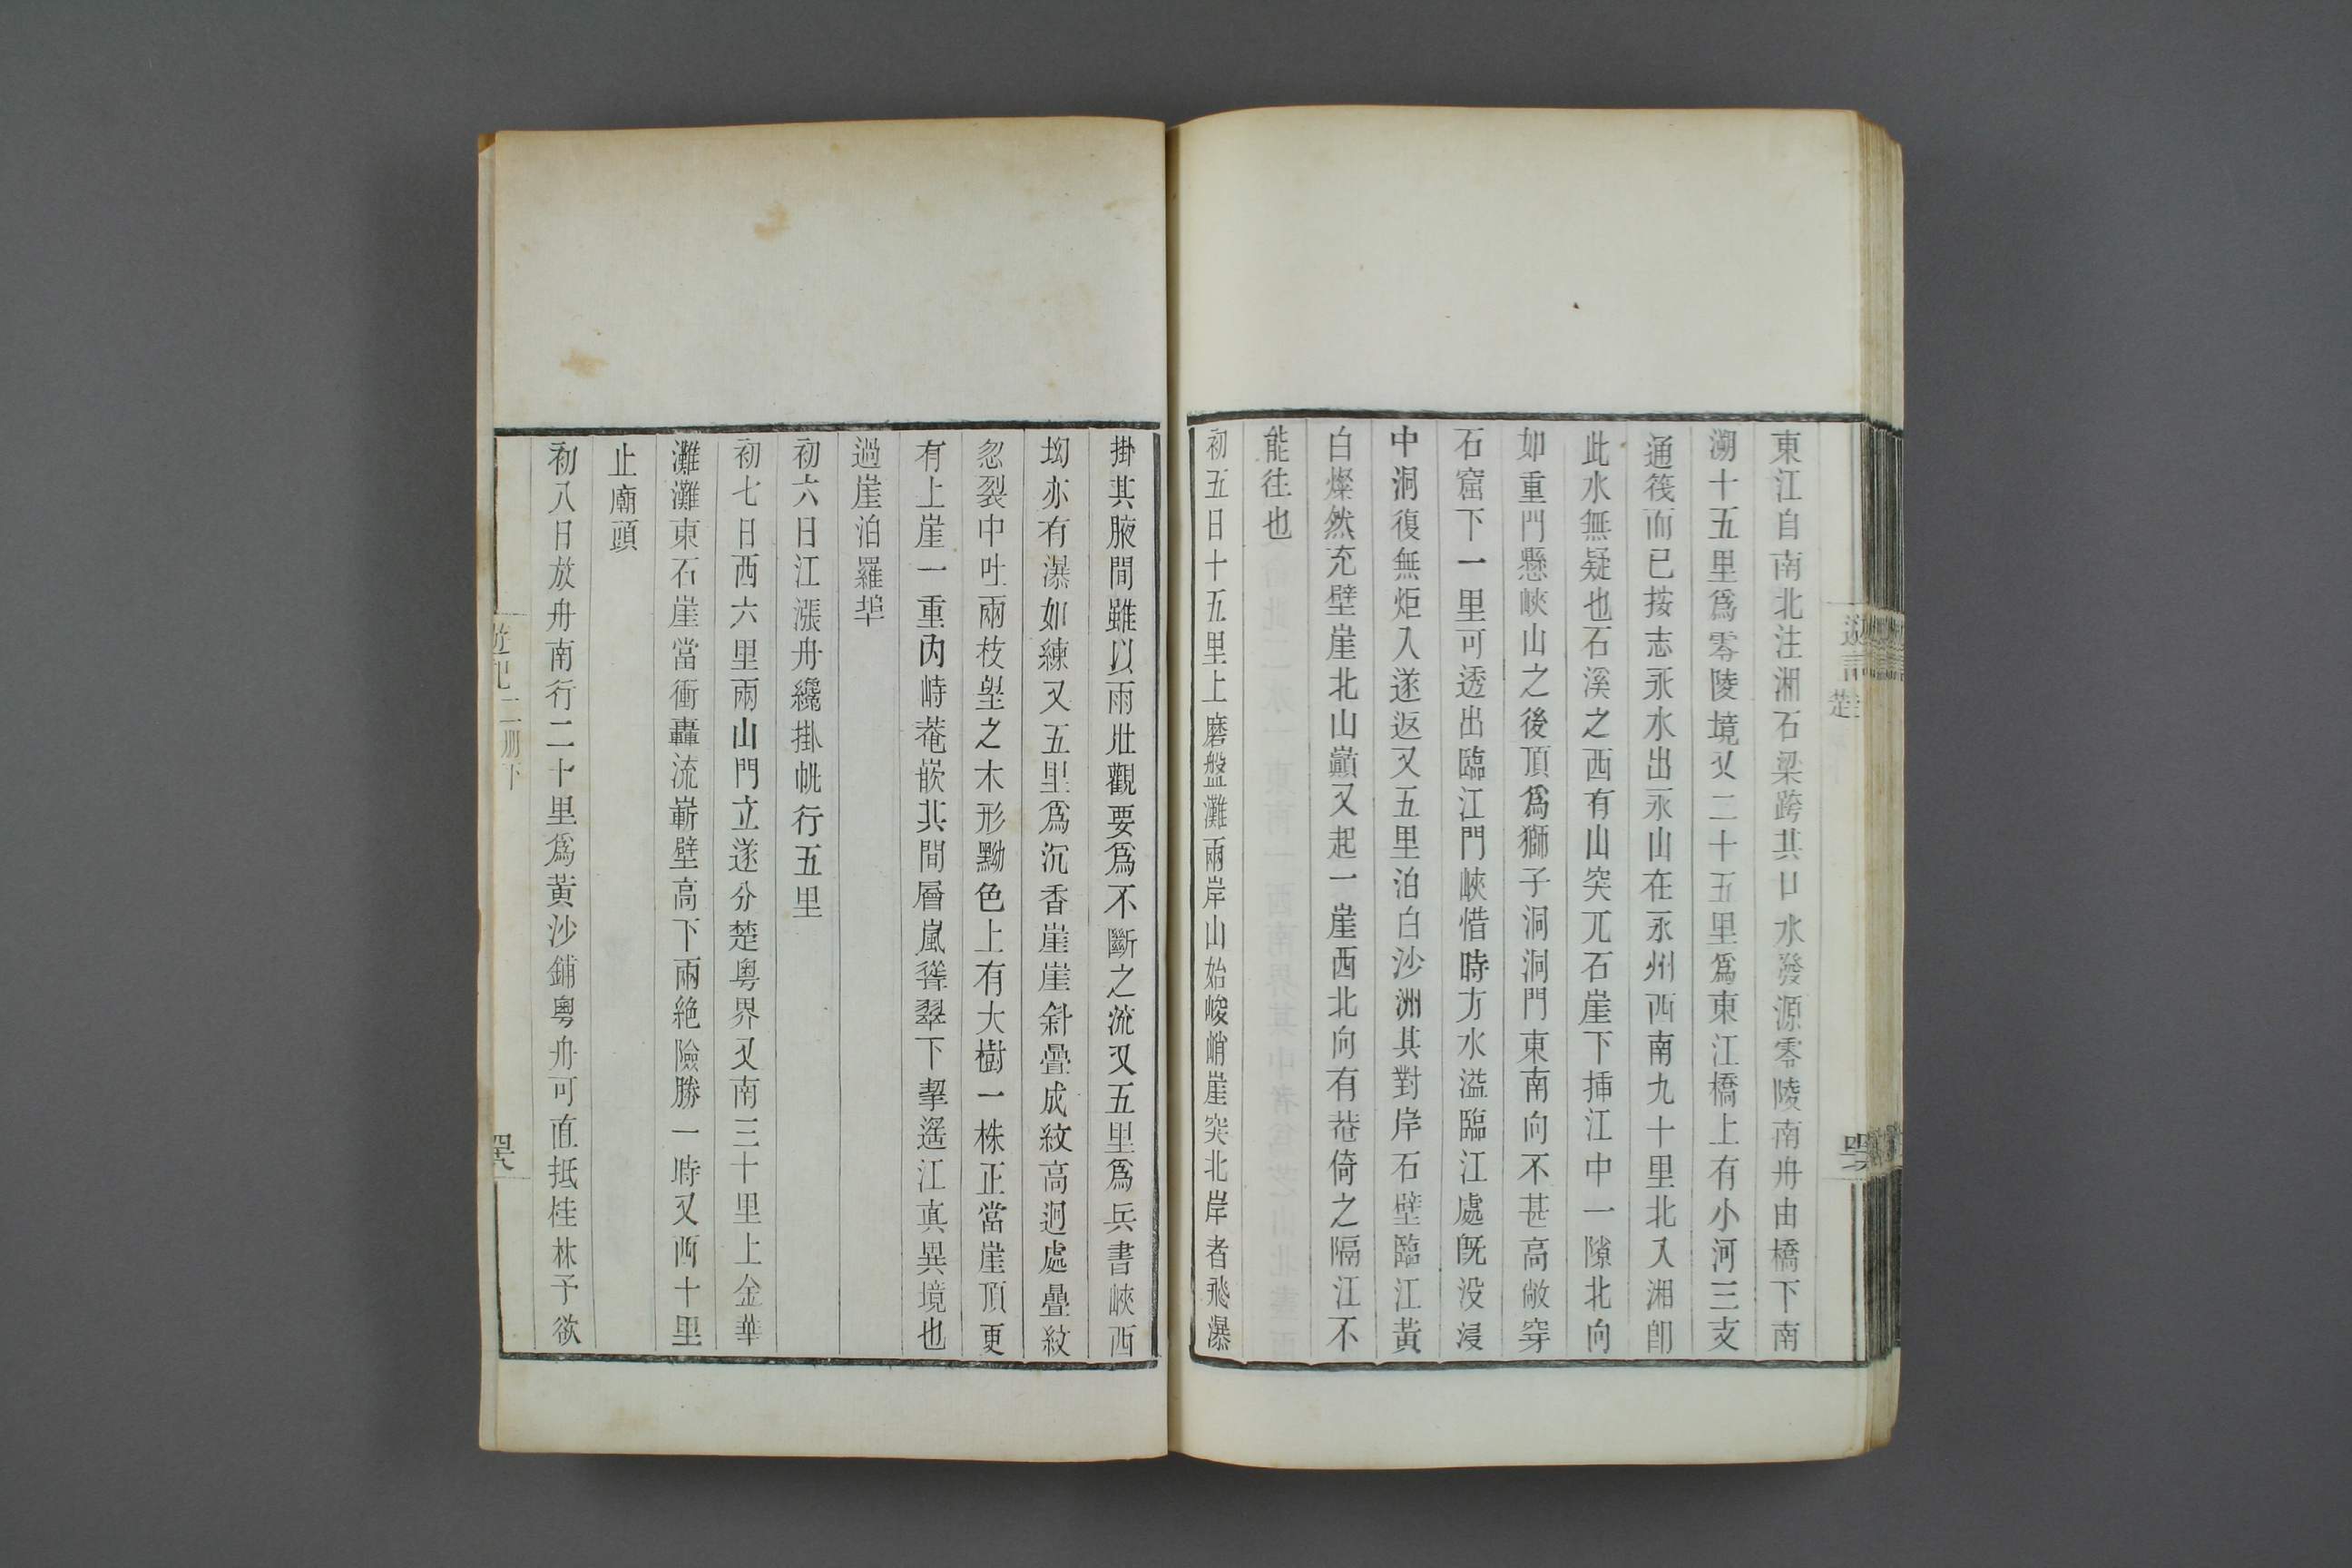 東江自南北注湘石梁跨其口水發源零陵南舟由橋下南
溯十五里爲零陵境又二十五里爲東江橋上有小河三支
通筏而已按志永水出永山在永州西南九十里北入湘卽
此水無疑也石溪之西有山突兀石崖下插江中一隙北向
如重門懸峽山之後頂爲獅子洞洞門東南向不甚高敞穿
石窟下一里可透出臨江門峽惜時方水溢臨江處旣没浸
中洞復無炬入遂返又五里泊白沙洲其對岸石壁臨江黃
白燦然充壁崖北山巔又起一崖西北向有菴倚之隔江不
能往也
初五日十五里上磨盤灘兩岸山始峻峭崖突北岸者飛瀑
掛其腋間雖以雨壯觀要爲不斷之流又五里爲兵書峽西
坳亦有瀑如練又五里爲沉香崖崖斜疊成紋高迥處疊紋
忽裂中吐兩枝望之木形黝色上有大樹一株正當崖頂更
有上崖一重內峙菴嵌其間層嵐聳翠下挈遥江真異境也
過崖泊羅埠
初六日江漲舟纔掛帆行五里
初七日西六里兩山門立遂分楚粤界又南三十里上金華
灘灘東石崖當衝轟流嶄壁高下兩絶險勝一時又西十里
止廟頭
初八日放舟南行二十里爲黃沙鋪粤舟可直抵桂林予欲
遊記二册下